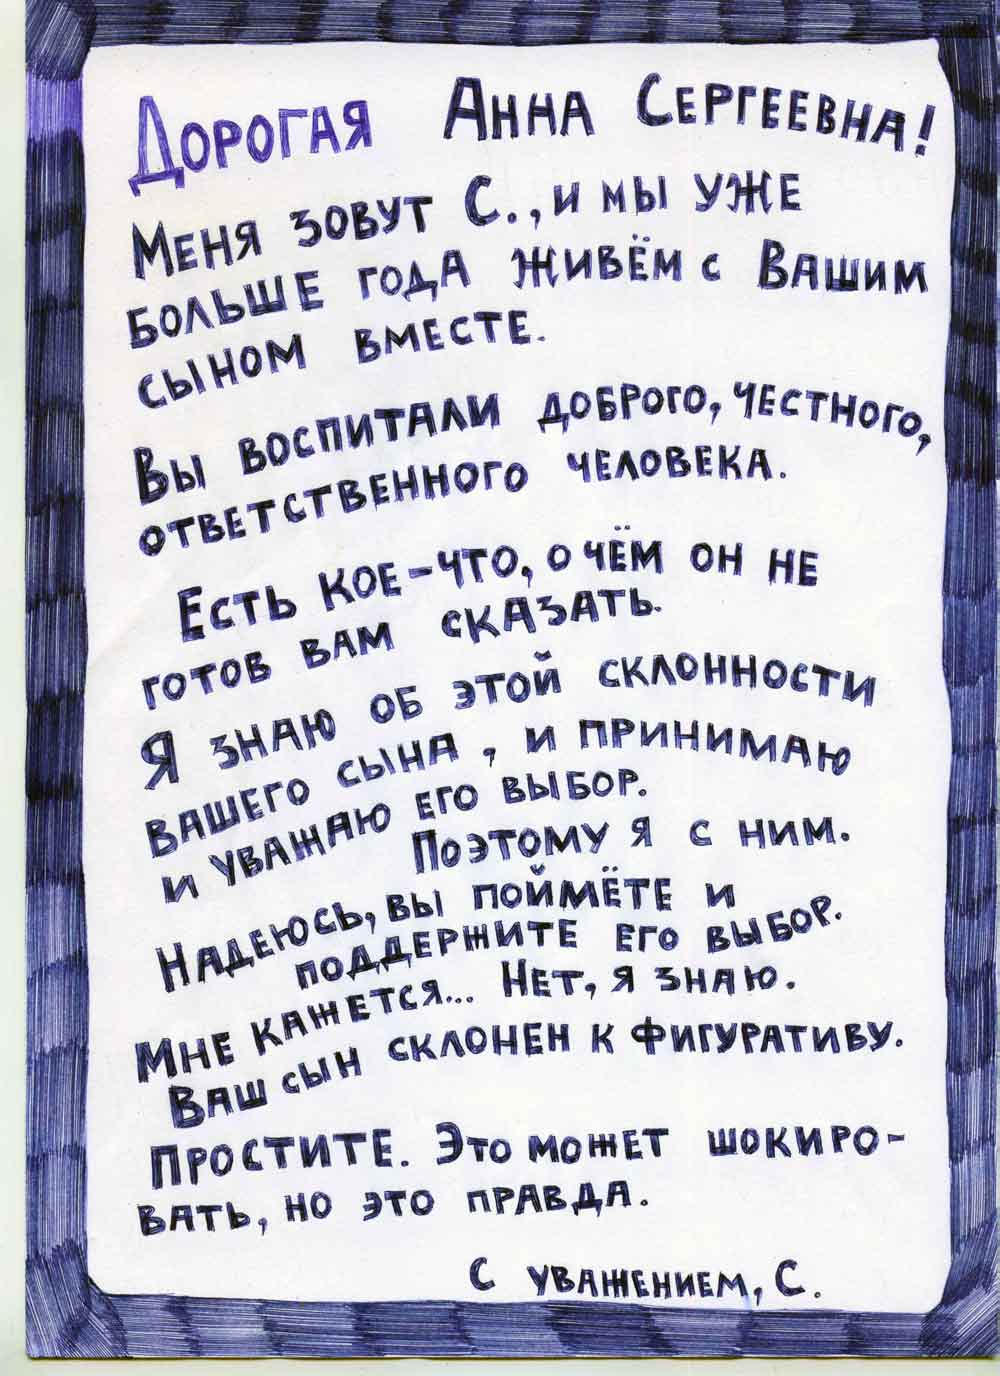 Дорогая Анна Сергеевна!
Меня зовут С., и мы уже
больше года живём с Вашим
сыном вместе.
Вы воспитали доброго, честного,
ответственного человека.
Есть кое-что, о чём он не
готов вам сказать.
Я знаю об этой склонности
вашего сына, и принимаю
и уважаю его выбор.
Поэтому я с ним.
Надеюсь, вы поймёте и
поддержите его выбор.
Мне кажется... Нет, я знаю.
Ваш сын склонен к фигуративу.
Простите. Это может шокиро-
вать, но это правда.
С уважением, С.